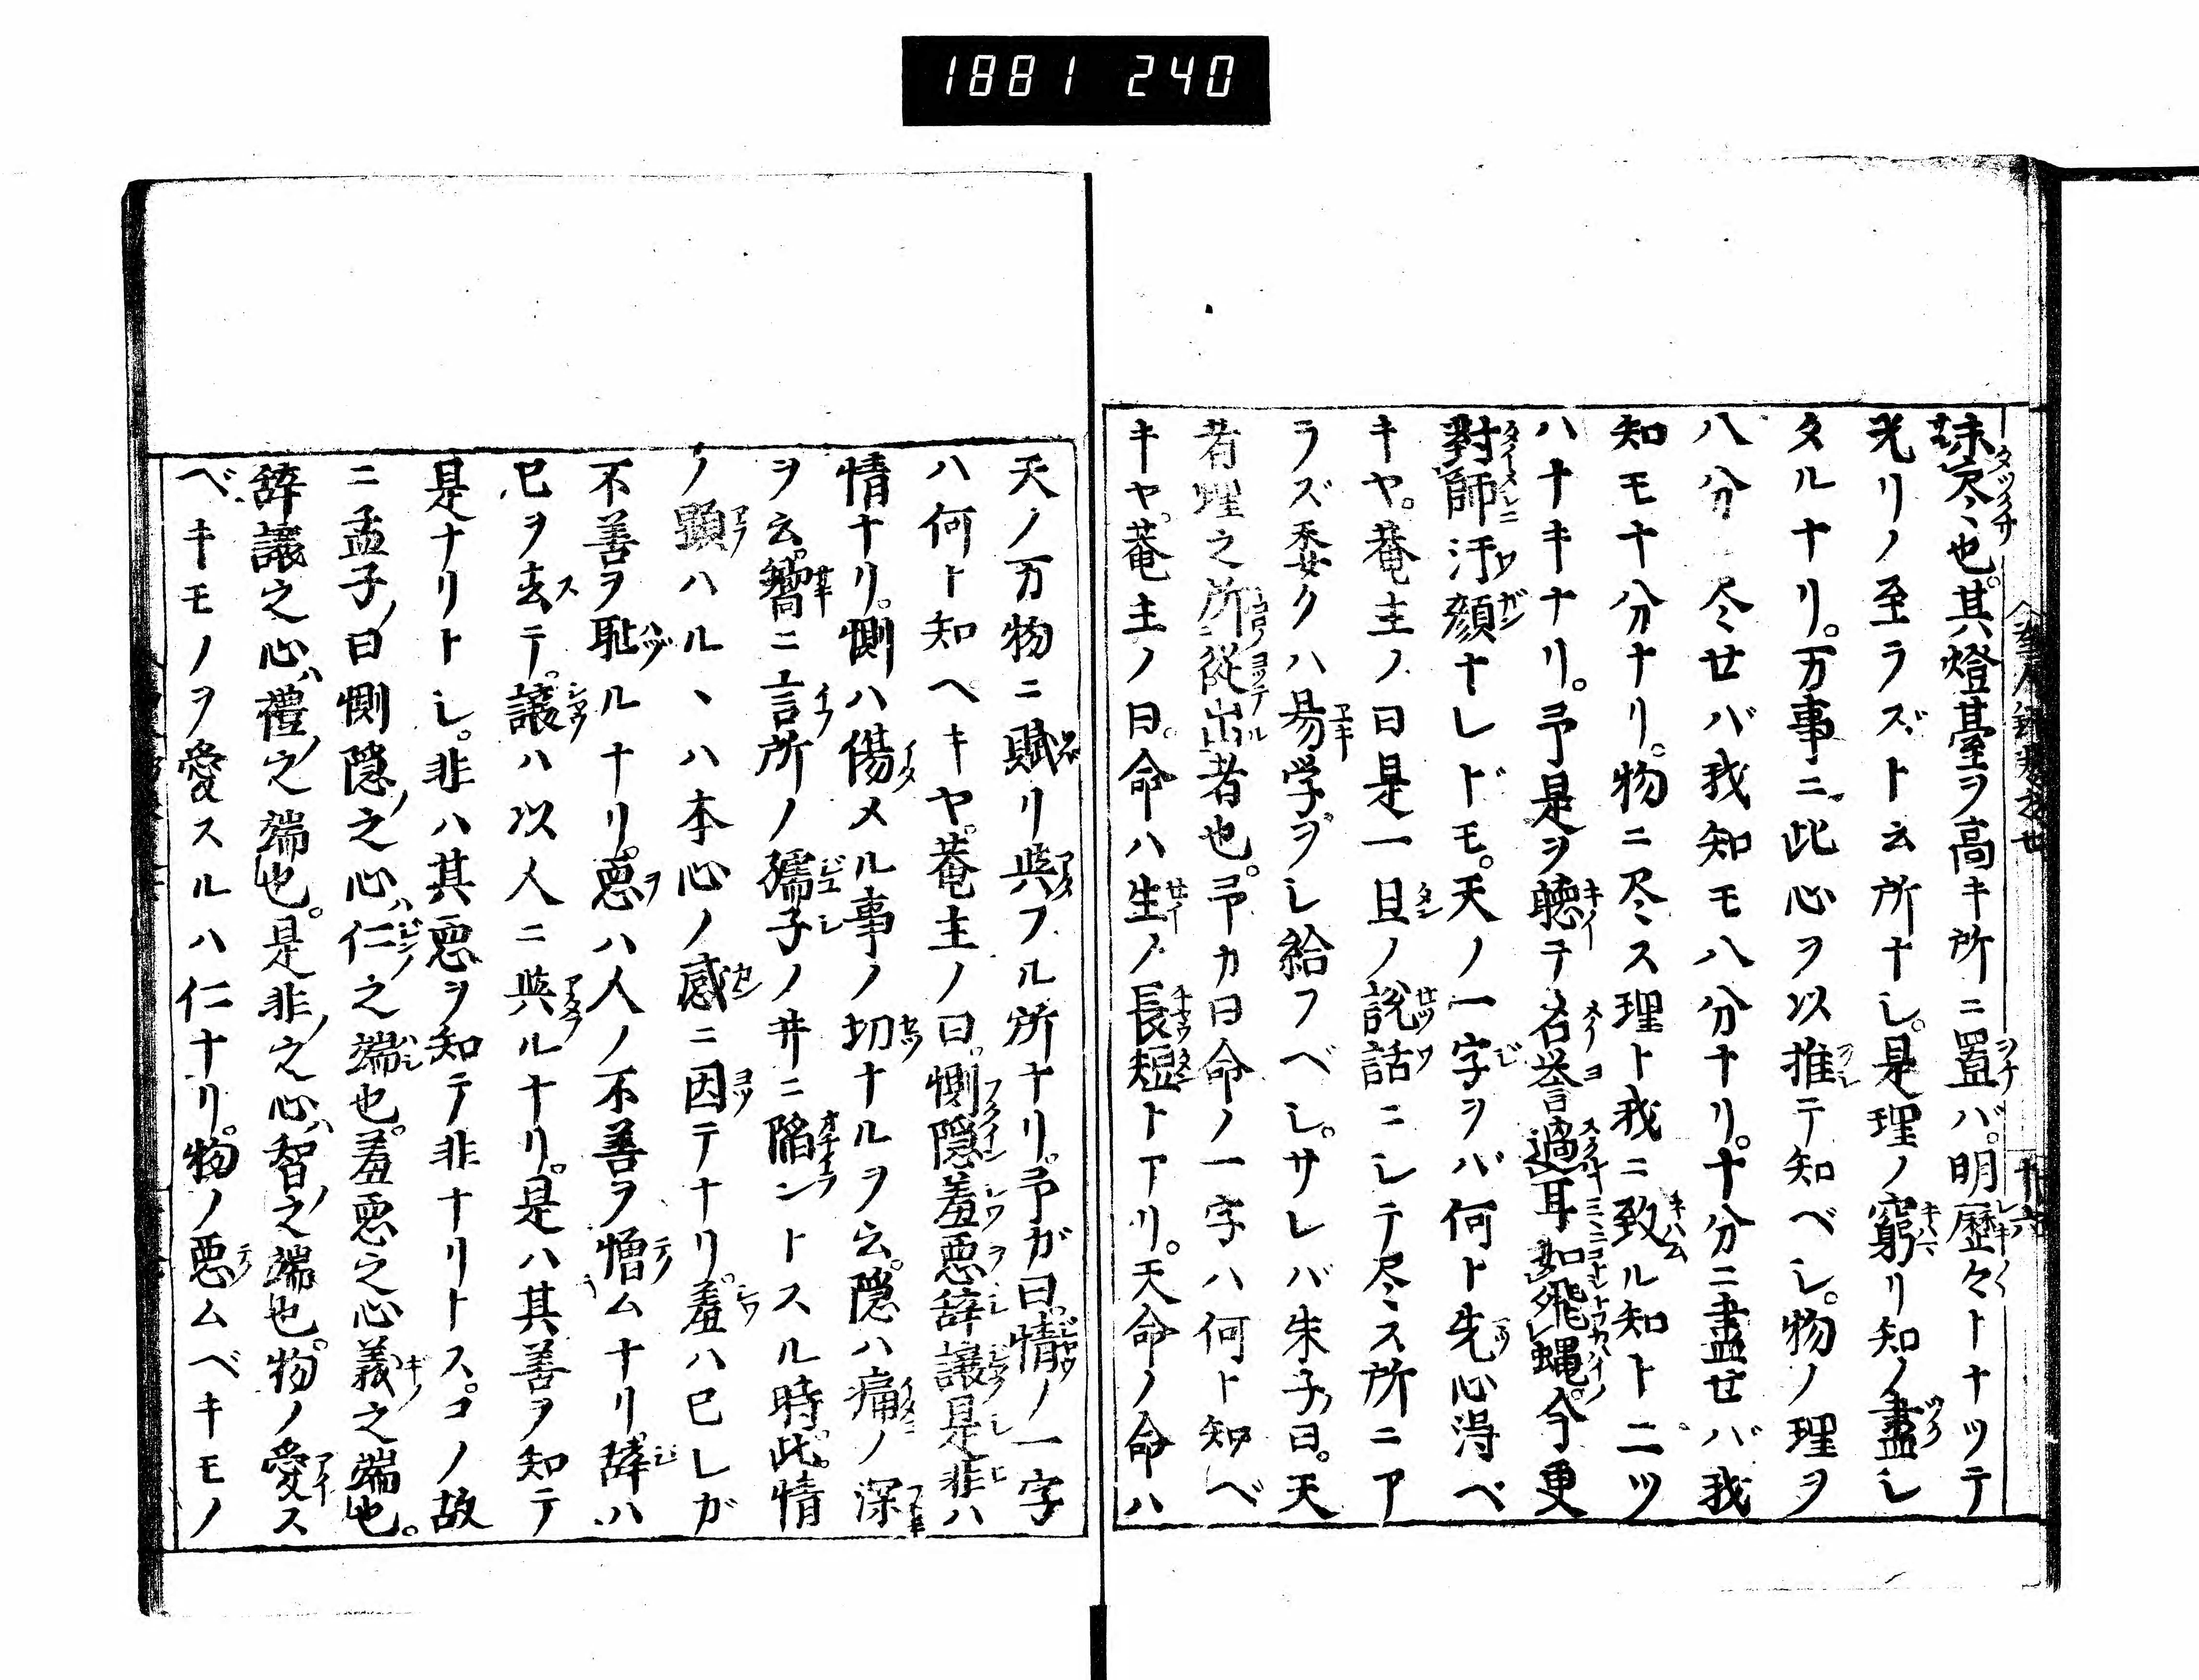 1881 240
未尽、也。其燈臺ヲ高キ所ニ置バ。明歴々トナツテ
光リノ至ラズト云所ナし。是理ノ窮リ知ノ盡し
タルナリ。万事ニ此心ヲ以推テ知ベし。物ノ理ヲ
八分尽せバ我知モ八分ナリ。十分ニ盡せバ我
知モ十分ナリ。物ニ尽ス理ト我ニ致ル知ト二ツ
ハナキナリ。予是ヲ聴テ名誉過耳如飛蝿。今更
對師汗顔ナレドモ。天ノ一字ヲバ何ト先心得ベ
キヤ。菴主ノ曰是一旦ノ説話ニシテ尽ス所ニア
ラズ委クハ易学ヲし給フベし。サレバ朱子曰。天
者理之所従出者也。予カ曰命ノ一字ハ何ト知ベ
キヤ。菴主ノ曰。命ハ生ノ長短トアリ。天命ノ命ハ
天ノ万物ニ賦リ與フル所ナリ。予が曰。情ノ一字
ハ何ト知ヘキヤ。菴主ノ曰。惻隠羞悪辞譲是非ハ
情ナリ。惻ハ傷メル事ノ切ナルヲ云。隠ハ痛ノ深
ヲ云。譬ニ言所ノ孺子ノ井ニ陥ントスル時。此情
ノ顕ハル、ハ本心ノ感ニ因テナリ。羞ハ已レガ
不善ヲ耻ルナリ。悪ハ人ノ不善ヲ憎ムナリ。辞ハ
已ヲ去テ。譲ハ以人ニ與ルナリ。是ハ其善ヲ知テ
是ナリトし。非ハ其悪ヲ知テ非ナリトス。コノ故
ニ孟子ノ曰惻隠ノ之心ハ仁之端也。羞悪之心義之端也。
辞譲之心ハ禮ノ之端也。是非ノ之心ハ智ノ之端也。物ノ愛ス
ベキモノヲ愛スルハ仁ナリ。物ノ悪ムベキモノ